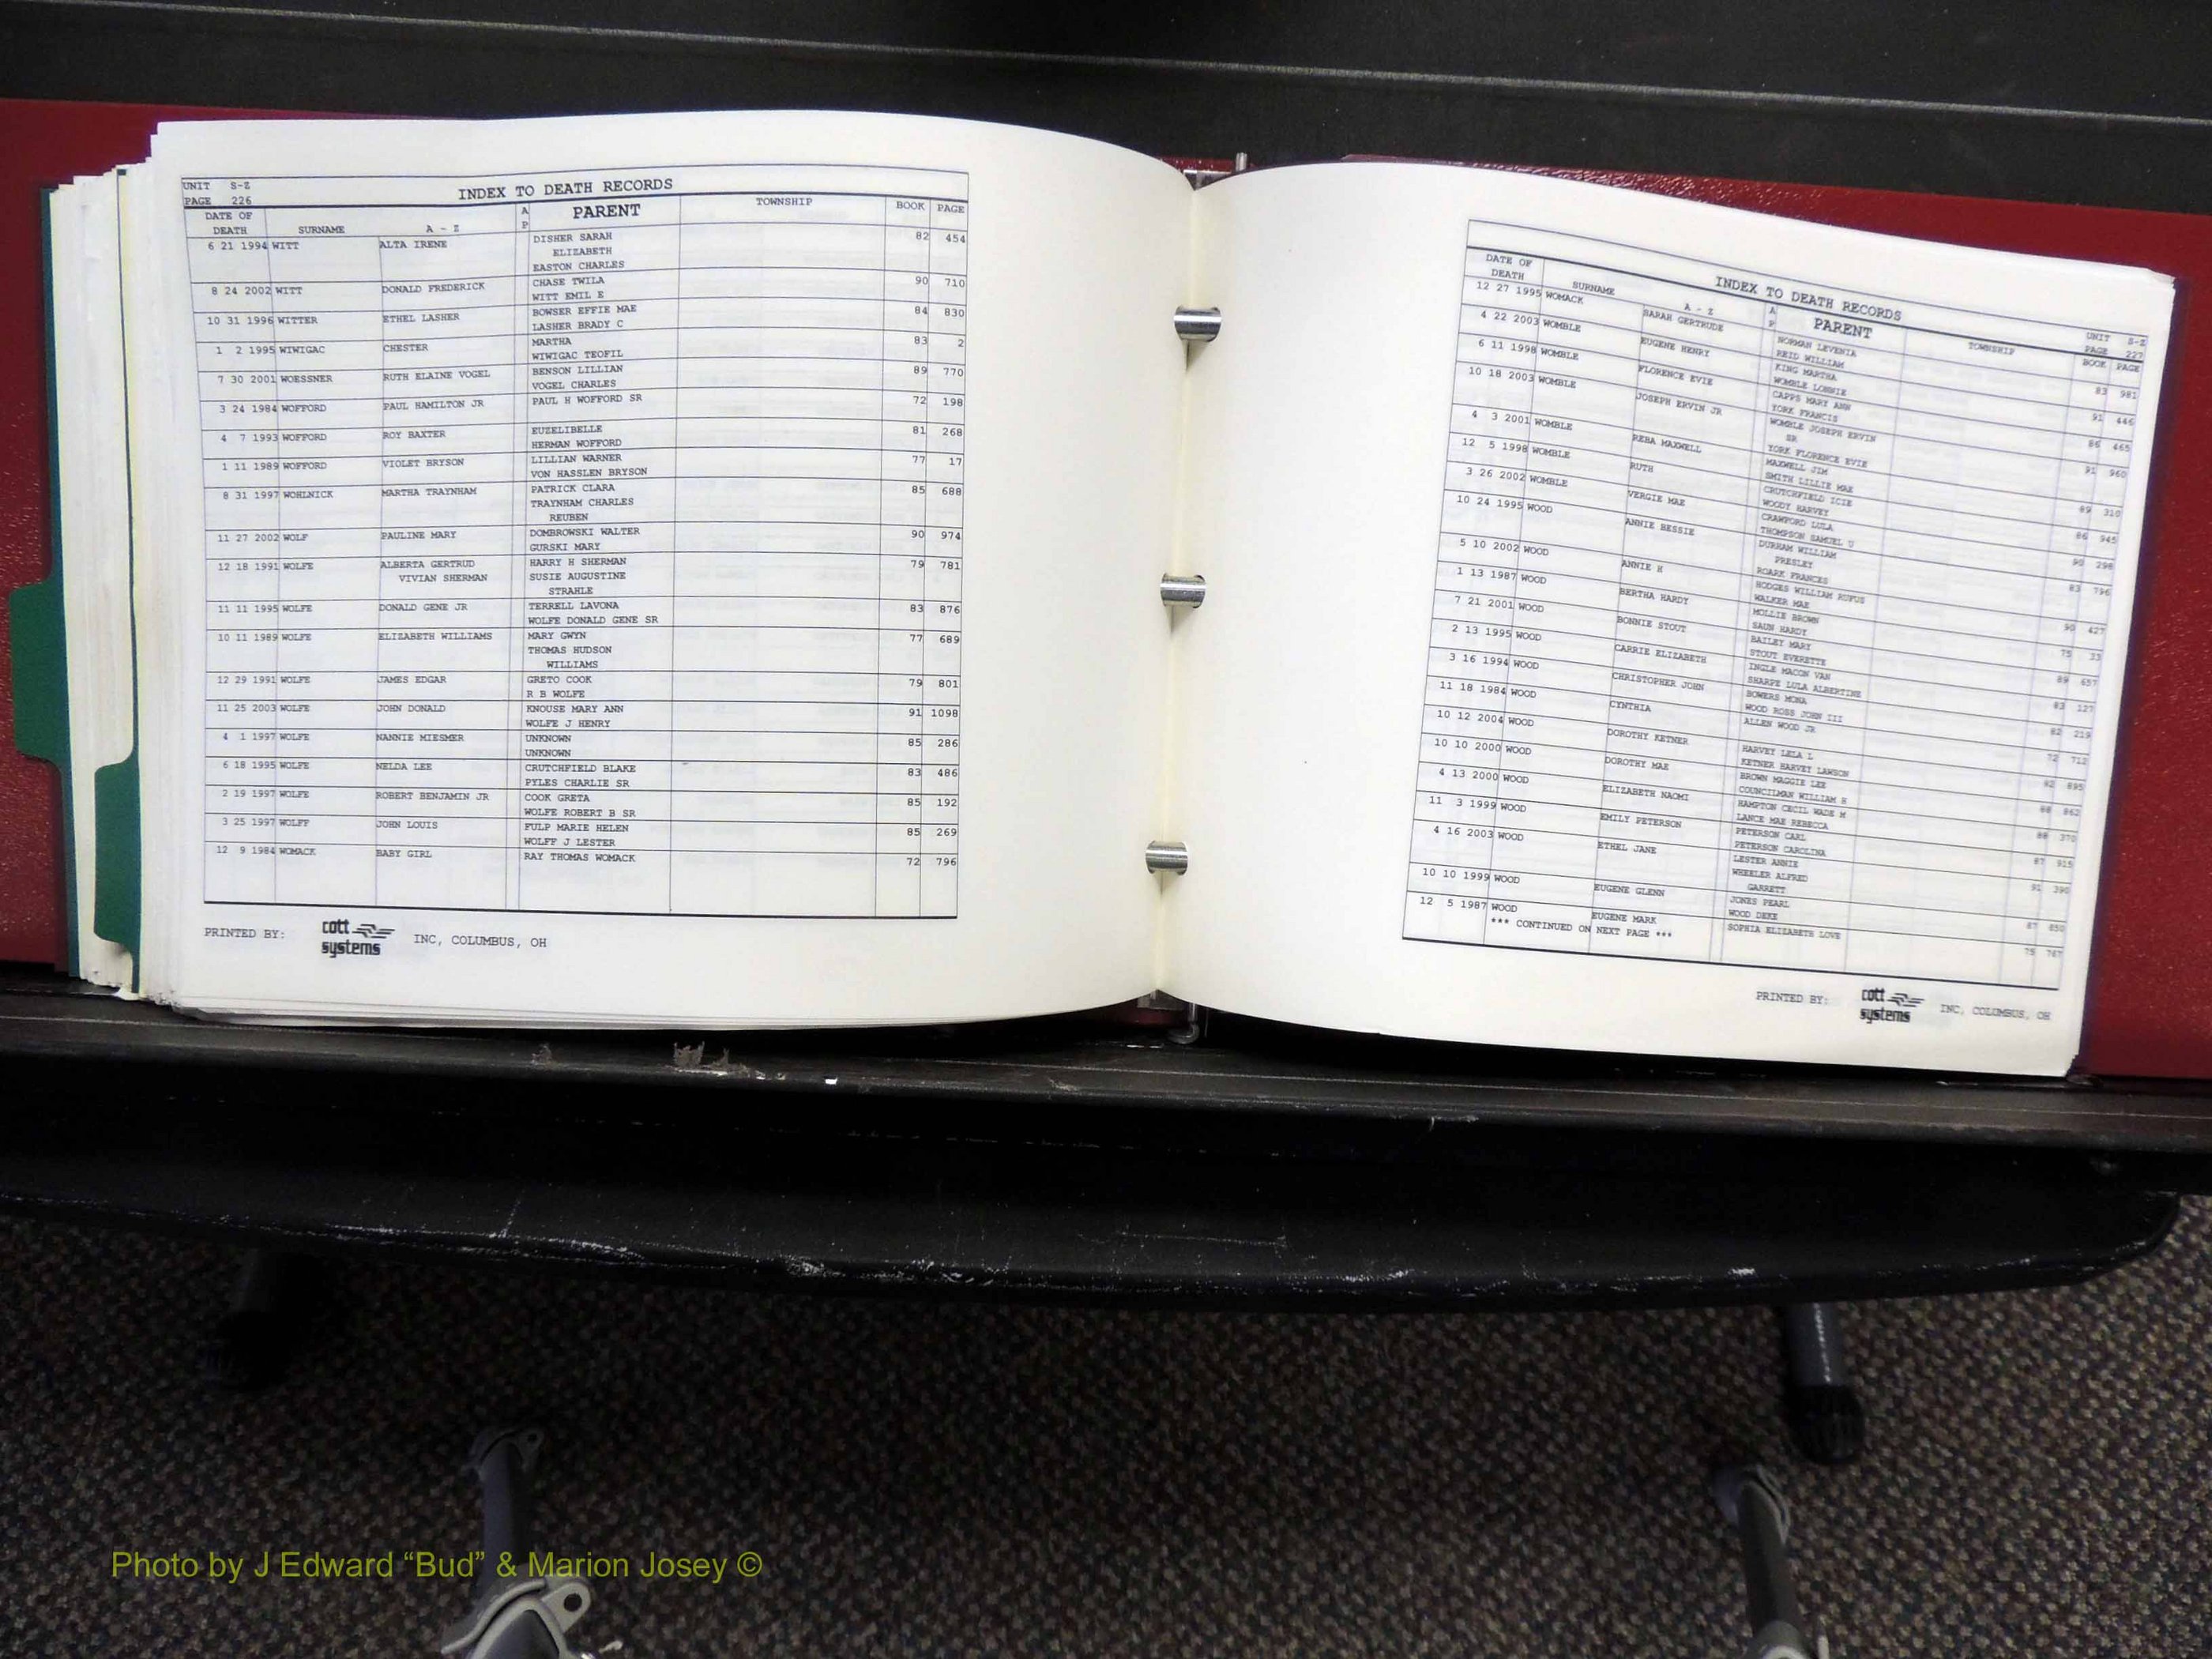 UNIT S-Z
PAGE 226
INDEX TO DEATH RECORDS
DATE OF DEATH SURNAME A - Z A P PARENT TOWNSHIP BOOK PAGE
6 21 1994 WITT ALTA IRENE DISHER SARAH 82 454
ELIZABETH
EASTON CHARLES
8 24 2002 WITT DONALD FREDERICK CHASE TWILA 90 710
WITT EMIL E
10 31 1996 WITTER ETHEL LASHER BOWSER EFFIE MAE 84 830
LASHER BRADY C
1 2 1995 WIWIGAC CHESTER MARTHA 83 2
WIWIGAC TEOFIL
7 30 2001 WOESSNER RUTH ELAINE VOGEL BENSON LILLIAN 89 770
VOGEL CHARLES
3 24 1984 WOFFORD PAUL HAMILTON JR PAUL H WOFFORD SR 72 198
4 7 1993 WOFFORD ROY BAXTER EUZELIBELLE 81 268
HERMAN WOFFORD
1 11 1989 WOFFORD VIOLET BRYSON LILLIAN WARNER 77 17
VON HASSLEN BRYSON
8 31 1997 WOHLNICK MARTHA TRAYNHAM PATRICK CLARA 85 688
TRAYNHAM CHARLES
REUBEN
11 27 2002 WOLF PAULINE MARY DOMBROWSKI WALTER 90 974
GURSKI MARY
12 18 1991 WOLFE ALBERTA GERTRUD HARRY H SHERMAN 79 781
VIVIAN SHERMAN SUSIE AUGUSTINE
STRAHLE
11 11 1995 WOLFE DONALD GENE JR TERRELL LAVONA 83 876
WOLFE DONALD GENE SR
10 11 1989 WOLFE ELIZABETH WILLIAMS MARY GWYN 77 689
THOMAS HUDSON
WILLIAMS
12 29 1991 WOLFE JAMES EDGAR GRETO COOK 79 801
R B WOLFE
11 25 2003 WOLFE JOHN DONALD KNOUSE MARY ANN 91 1098
WOLFE J HENRY
4 1 1997 WOLFE NANNIE MIESMER UNKNOWN 85 286
UNKNOWN
6 18 1995 WOLFE NELDA LEE CRUTCHFIELD BLAKE 83 486
PYLES CHARLIE SR
2 19 1997 WOLFE ROBERT BENJAMIN JR COOK GRETA 85 192
WOLFE ROBERT B SR
3 25 1997 WOLFF JOHN LOUIS FULP MARIE HELEN 85 269
WOLFF J LESTER
12 9 1984 WOMACK BABY GIRL RAY THOMAS WOMACK 72 796
PRINTED BY: cott systems INC, COLUMBUS, OH
INDEX TO DEATH RECORDS
UNIT S-Z
PAGE 227
DATE OF DEATH SURNAME A - Z A P PARENT TOWNSHIP BOOK PAGE
12 27 1995 WOMACK SARAH GERTRUDE NORMAN LEVENIA 83 981
REID WILLIAM
4 22 2003 WOMBLE EUGENE HENRY KING MARTHA 91 446
WOMBLE LONNIE
6 11 1998 WOMBLE FLORENCE EVIE CAPPS MARY ANN 86 465
YORK FRANCIS
10 18 2003 WOMBLE JOSEPH ERVIN JR WOMBLE JOSEPH ERVIN 91 960
SR
YORK FLORENCE EVIE
4 3 2001 WOMBLE REBA MAXWELL MAXWELL JIM 89 310
SMITH LILLIE MAE
12 5 1998 WOMBLE RUTH CRUTCHFIELD ICIE 86 945
WOODY HARVEY
3 26 2002 WOMBLE VERGIE MAE CRAWFORD LULA 90 298
THOMPSON SAMUEL U
10 24 1995 WOOD ANNIE BESSIE DURHAM WILLIAM 83 796
PRESLEY
ROARK FRANCES
5 10 2002 WOOD ANNIE H HODGES WILLIAM RUFUS 90 427
WALKER MAE
1 13 1987 WOOD BERTHA HARDY MOLLIE BROWN 75 33
SAUN HARDY
7 21 2001 WOOD BONNIE STOUT BAILEY MARY 89 657
STOUT EVERETTE
2 13 1995 WOOD CARRIE ELIZABETH INGLE MACON VAN 83 127
SHARPE LULA ALBERTINE
3 16 1994 WOOD CHRISTOPHER JOHN BOWERS MONA 82 219
WOOD ROSS JOHN III
11 18 1984 WOOD CYNTHIA ALLEN WOOD JR 72 712
10 12 2004 WOOD DOROTHY KETNER HARVEY LELA L 92 895
KETNER HARVEY LAWSON
10 10 2000 WOOD DOROTHY MAE BROWN MAGGIE LEE 88 862
COUNCILMAN WILLIAM H
4 13 2000 WOOD ELIZABETH NAOMI HAMPTON CECIL WADE M 88 370
LANCE MAE REBECCA
11 3 1999 WOOD EMILY PETERSON PETERSON CARL 87 915
PETERSON CAROLINA
4 16 2003 WOOD ETHEL JANE LESTER ANNIE 91 390
WHEELER ALFRED
GARRETT
10 10 1999 WOOD EUGENE GLENN JONES PEARL 87 850
WOOD DEKE
12 5 1987 WOOD EUGENE MARK SOPHIA ELIZABETH LOVE 75 767
*** CONTINUED ON NEXT PAGE ***
PRINTED BY: cott systems INC, COLUMBUS, OH
Photo by J Edward “Bud” & Marion Josey ©